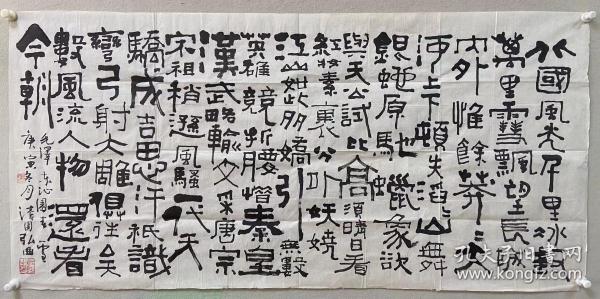 北國風光千里冰封
萬里雪飄望長城
内外惟餘莽莽大
河上下頓失滔滔山舞
銀蛇原馳蠟象欲
與天公試比高須晴日看
紅裝素裹分外妖嬈
江山如此多嬌引無數
英雄競折腰惜秦皇
漢武略輸文采唐宗
宋祖稍遜風騷一代天
驕成吉思汗祇識
彎弓射大雕俱往矣
數風流人物還看
今朝
毛澤東沁園春雪
庚寅冬月
孔夫子旧书网
kongfz.com